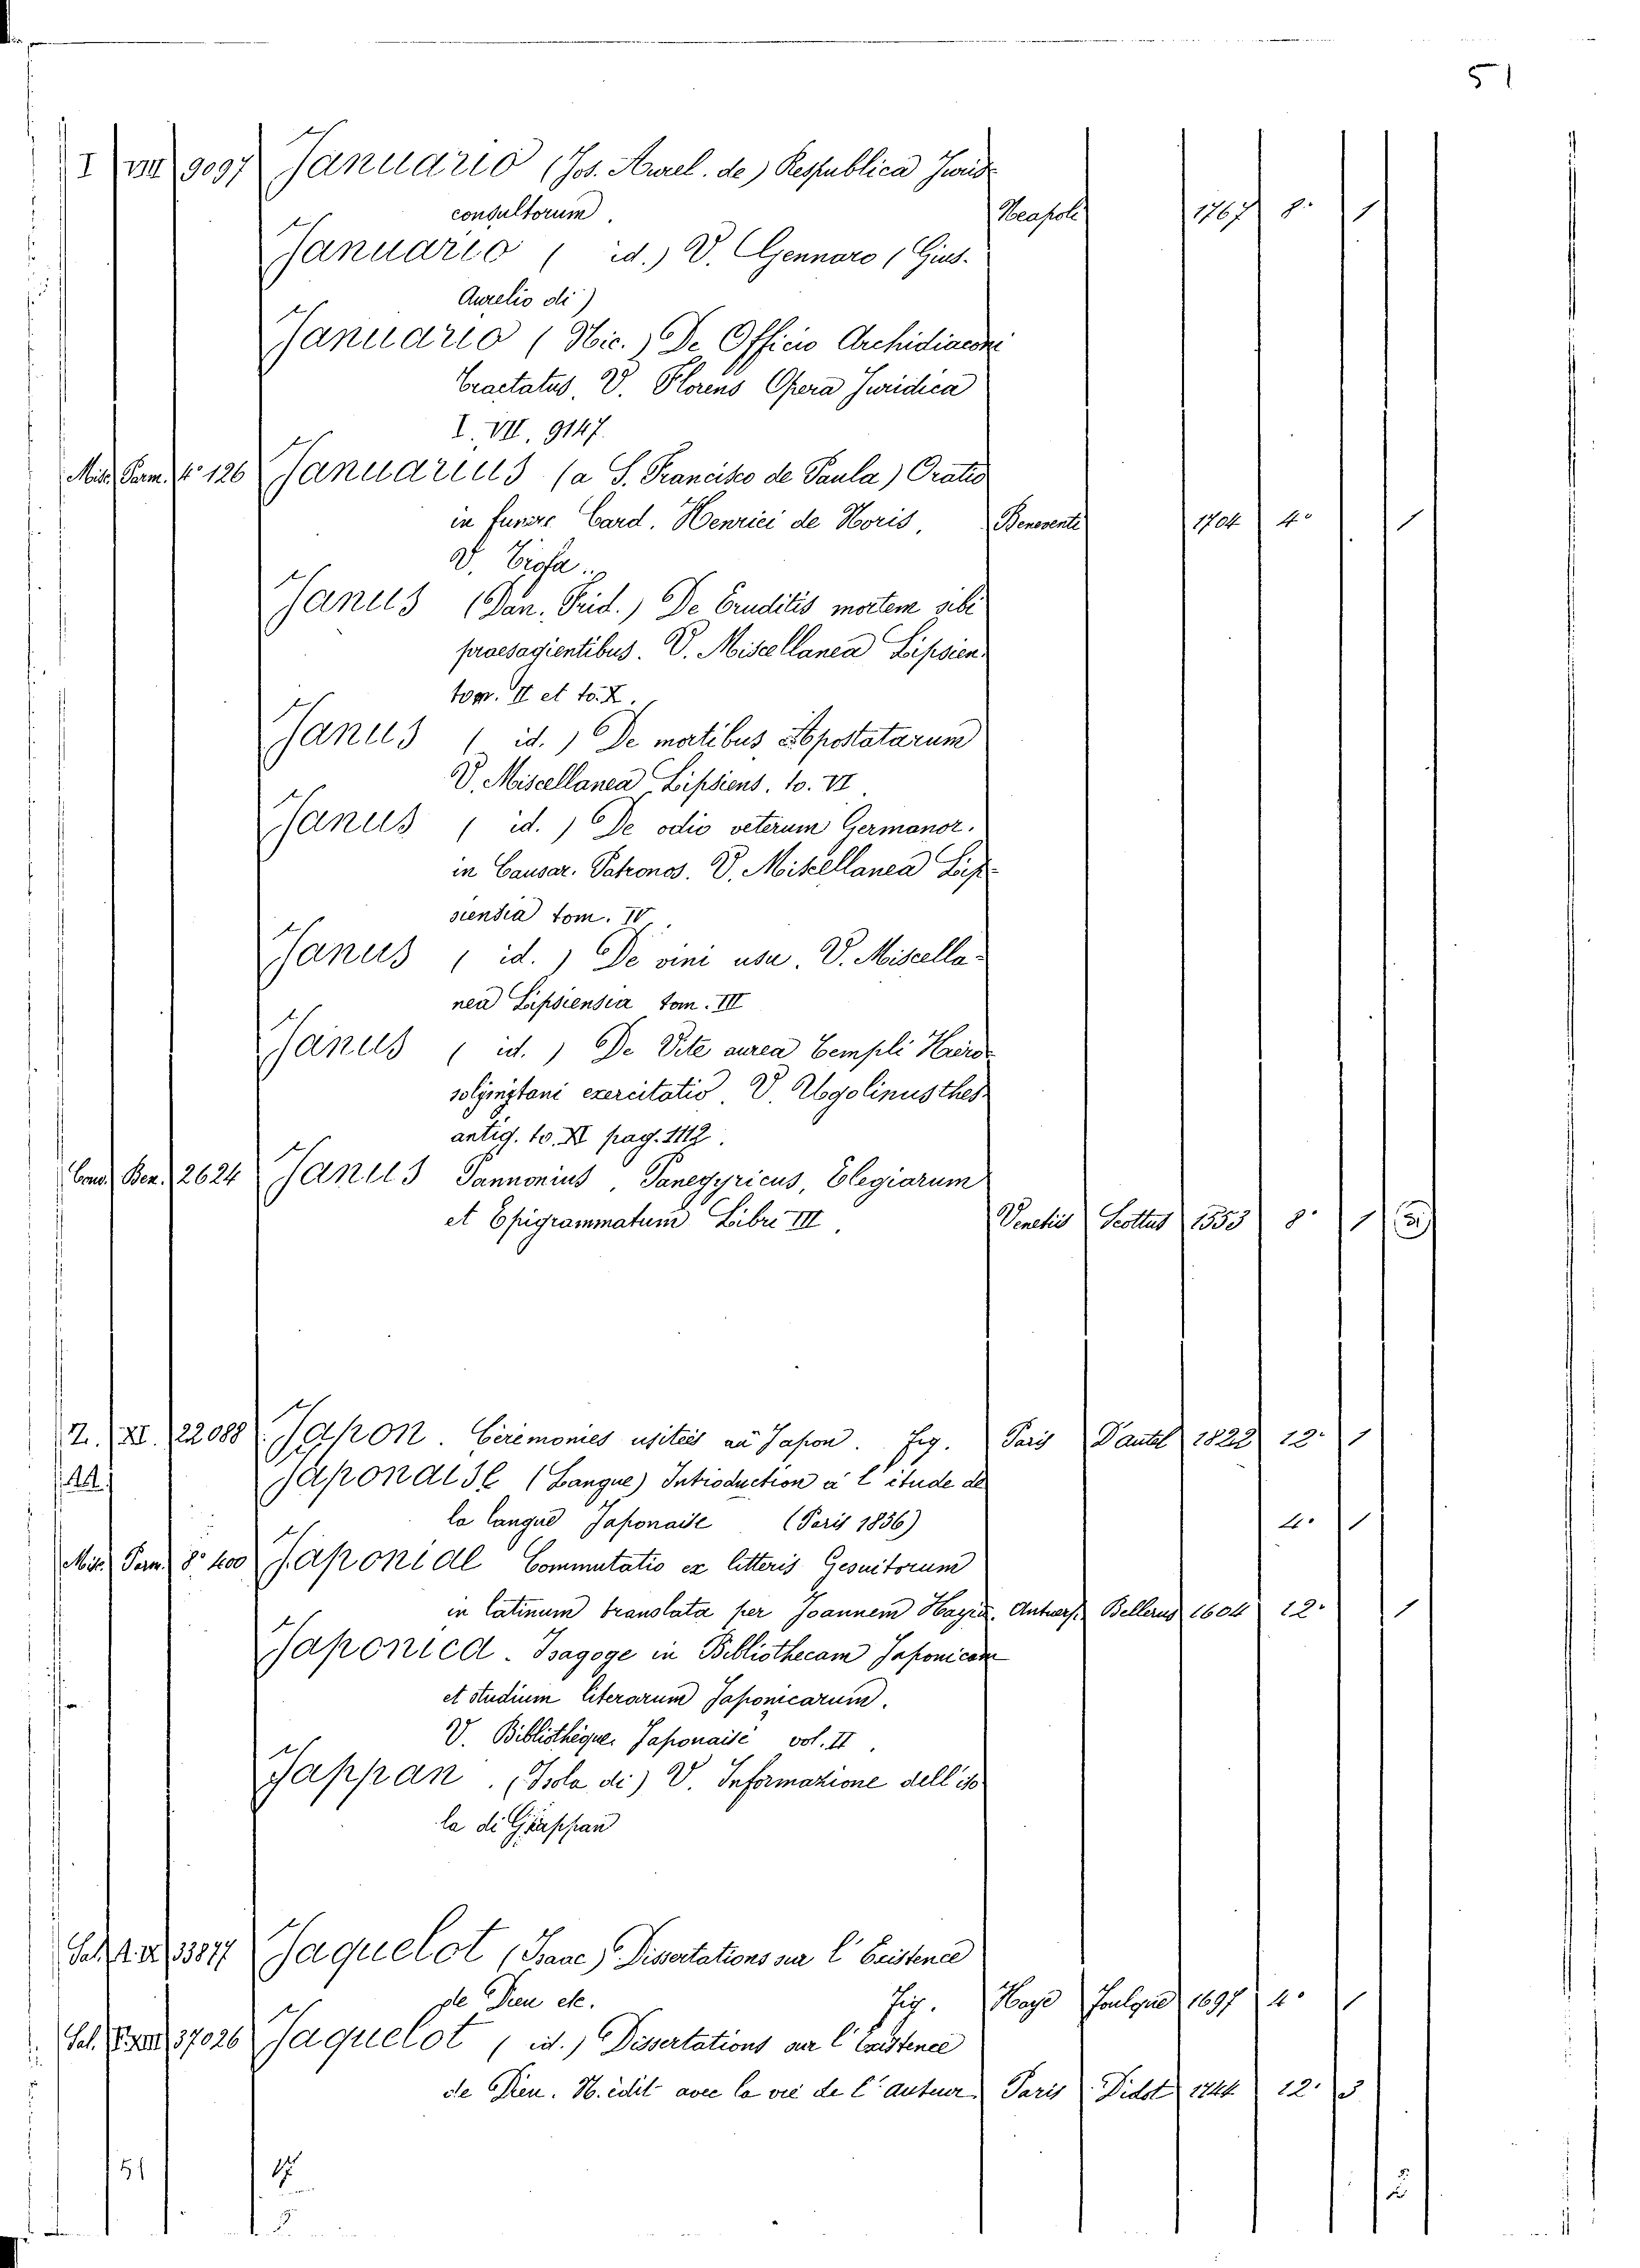 51
I VII 9097 Januario (Jos. Aurel. de) Respublica Juris
consultorum. Neapoli 1767 8° 1
Januario ( id.) V. Gennaro (Gius.
Aurelio di)
Januario (Nic.) De Officio Archidiaconi
Tractatus, V. Florens Opera Juridica
I. VII, 9147.
Misc. Parm. 4° 126 Januarius (a S. Francisco de Paula) Oratio
in funere Card. Henrici de Noris, Benevente 1704 4° 1
V.
Janus (Dan. Frid.) De Eruditis mortem sibi
praesagientibus. V. Miscellanea Lipsien.
tom. II et to. X.
Janus ( id. ) De mortibus Apostatarum
V. Miscellanea Lipsiens. to. VI.
Janus ( id. ) De odio veterum Germanor.
in Causar. Patronos. V. Miscellanea Lip
siensia tom. IV.
Janus ( id. ) De vini usu. V. Miscella-
nea Lipsiensia tom. III
Janus ( id. ) De Vite aurea Templi Hiero
solymitani exercitatio V. Ugolinus thes.
antiq. to. XI pag. 1112.
Ben. 2624 Janus Pannonius, Panegyricus, Elegiarum
et Epigrammatum Libri III. Venetiis Scottus 1553 8° 1
Z. XI. 22088 Japon. Cérémonies usitées au Japon. Fig. Paris 1822 12° 1
Japonaise (Langue) Introduction à l'étude de
la langue Japonaise (Paris 1836) 4. 1
Misc. Parm. 8° 400 Japonidae Commutatio ex litteris Gesuitorum
in latinum translata per Joannem Antwerp. Bellerus 1604 12° 1
Japonica. Isagoge in Bibliothecam Japonicam
et studium literarum Japonicarum.
V. Bibliothèque Japonaise vol. II.
Jappan. (Isola di) V. Informazione dell'iso
la di Giappan
33877 Jaquelot (Isaac) Dissertations sur l'Existence
de Dieu etc. Fig. Haye Foulque 1697 4° 1
Sal. 37026 Jaquelot ( id.) Dissertations sur l'Existence
de Dieu. N. édit avec la vie de l'auteur Paris Didot 1744 12° 3
51